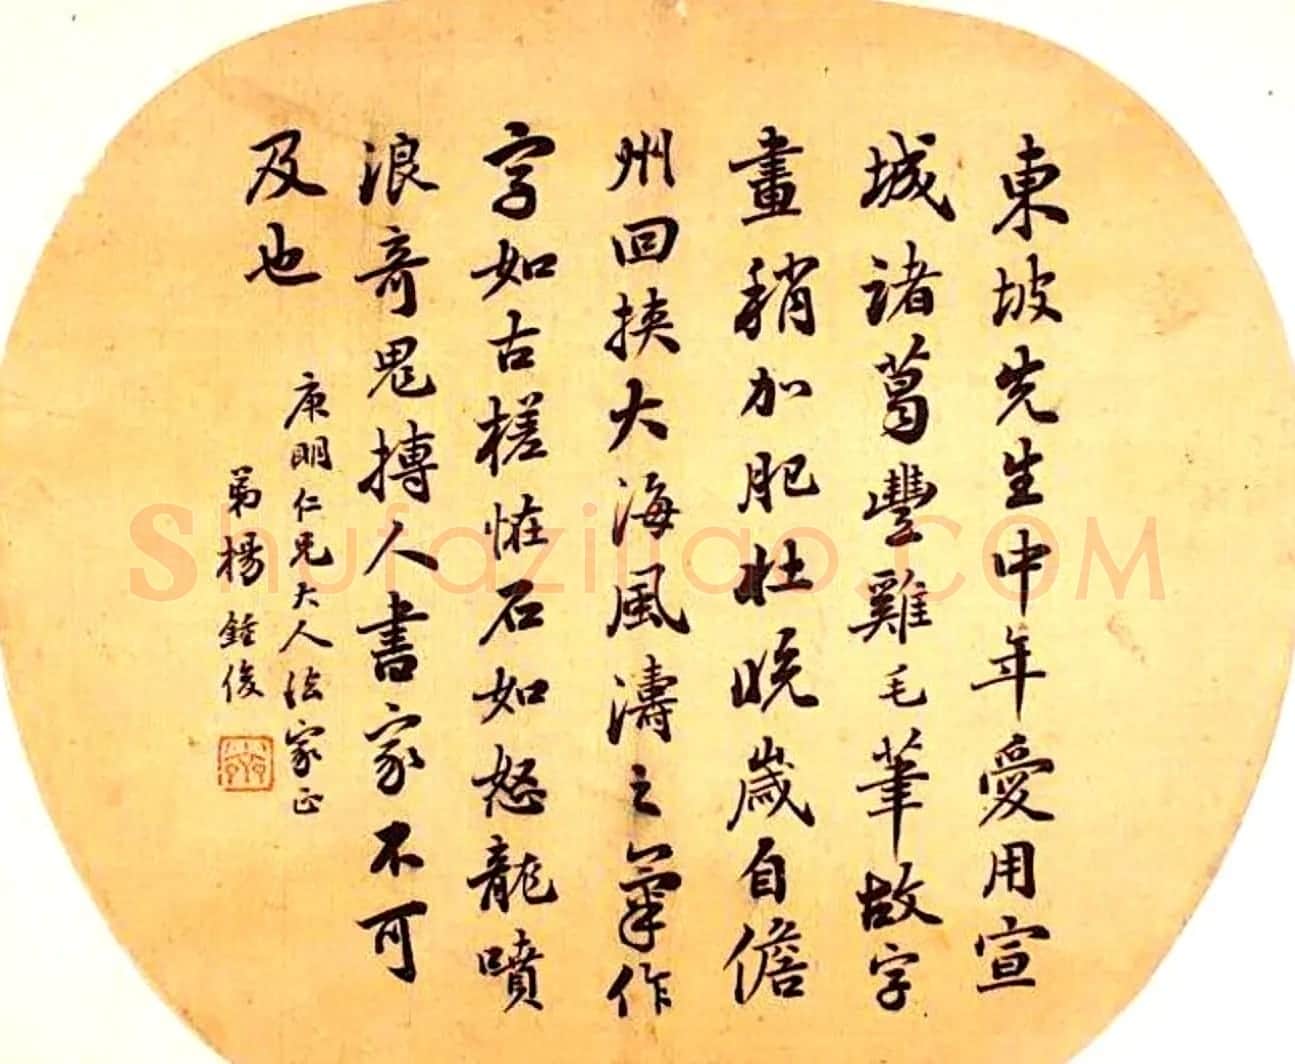 東坡先生中年愛用宣
城諸葛豐雞毛筆故字
畫稍加肥壯晚歲自儋
州回挾大海風濤之氣作
字如古槎怪石如怒龍噴
浪奇鬼搏人書家不可
及也
庚明仁兄大人法家正
弟楊鍾俊
Shufaziliao.COM